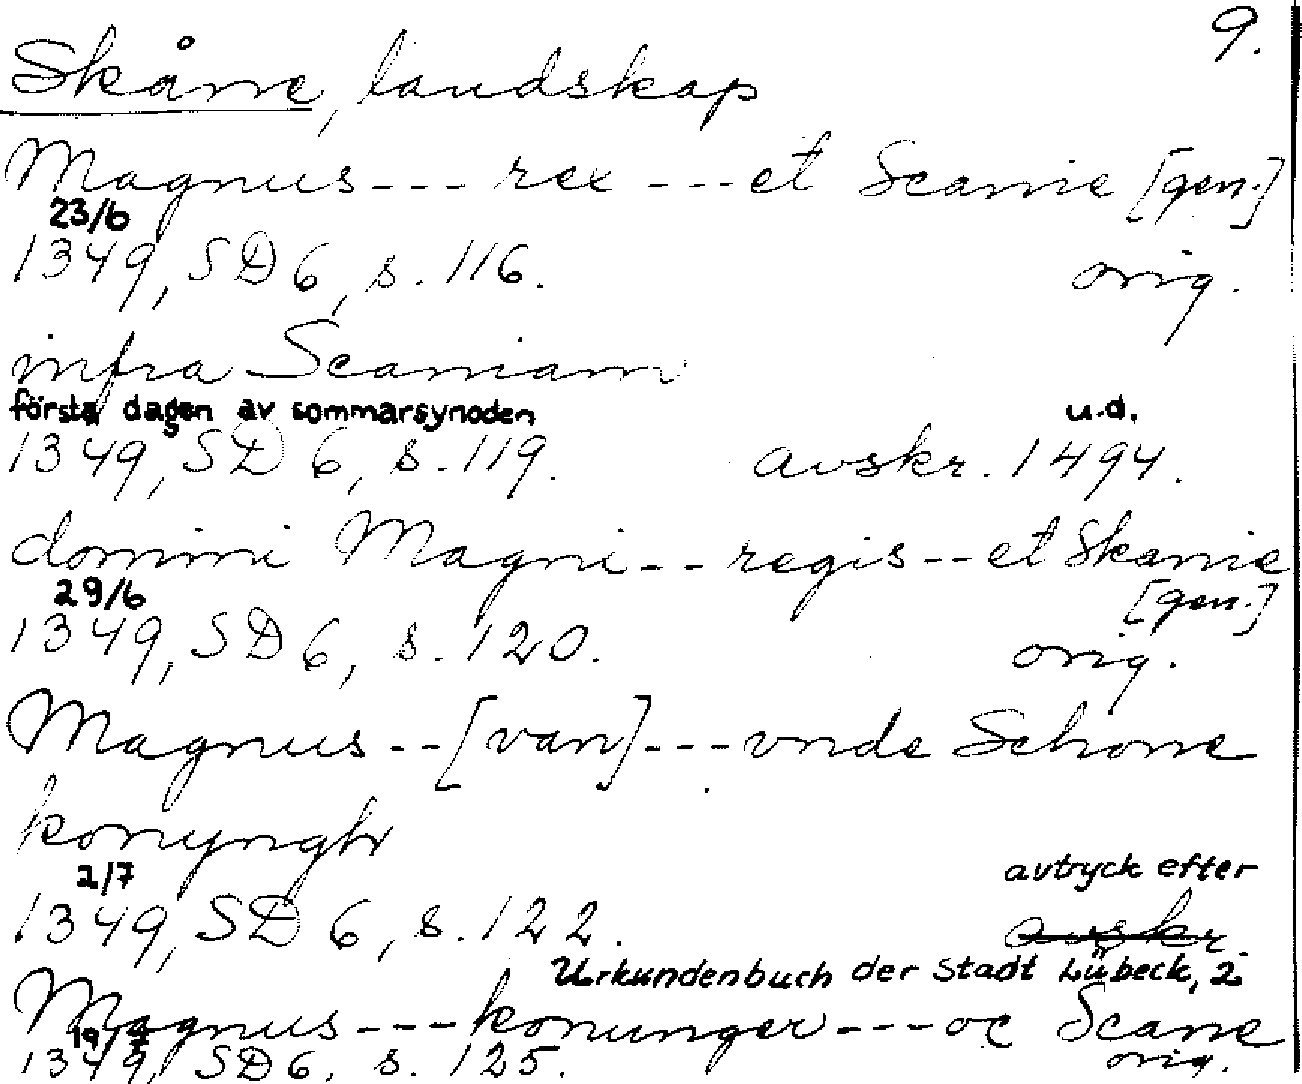 9.
Skåne, landskap
Magnus --- rex --- et Scanie [gen.]
23/6
1349, SD 6, s. 116. orig.
infra Scaniam
första dagen av sommarsynoden u.d.
1349, SD 6, s. 119. avskr. 1494.
domini Magni -- regis -- et Skanie
[gen.]
29/6
1349, SD 6, s. 120. orig.
Magnus -- [van] --- vnde Schone
konyngh
2/7 avtryck efter
1349, SD 6, s. 122. avskr.
Urkundenbuch der Stadt Lübeck, 2
Magnus --- konunger --- oc Scane
1349, SD 6, s. 125. orig.